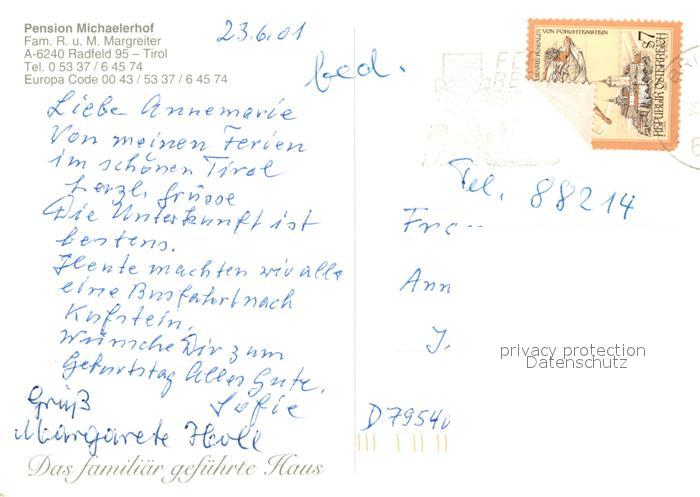 Pension Michaelerhof
Fam. R. u. M. Margreiter
A-6240 Radfeld 95 – Tirol
Tel. 0 53 37 / 6 45 74
Europa Code 00 43 / 53 37 / 6 45 74
23.6.01
bed.
Liebe Annemarie
Von meinen Ferien
im schönen Tirol
herzl. Grüsse
Die Unterkunft ist
bestens.
Heute machten wir alle
eine Busfahrt nach
Kufstein.
Wünsche Dir zum
Geburtstag Alles Gute.
Sofie
Gruß
Margarete Holl
Das familiär geführte Haus
VON FORCHTENSTEIN
S7
REPUBLIK ÖSTERREICH
Tel. 88214
Fra
Ann
J.
D 79540
privacy protection
Datenschutz